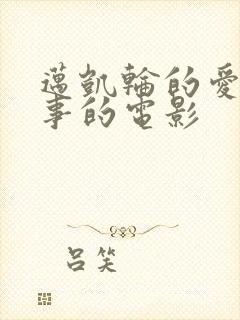 邁凱輪的愛
事的電影
呂笑